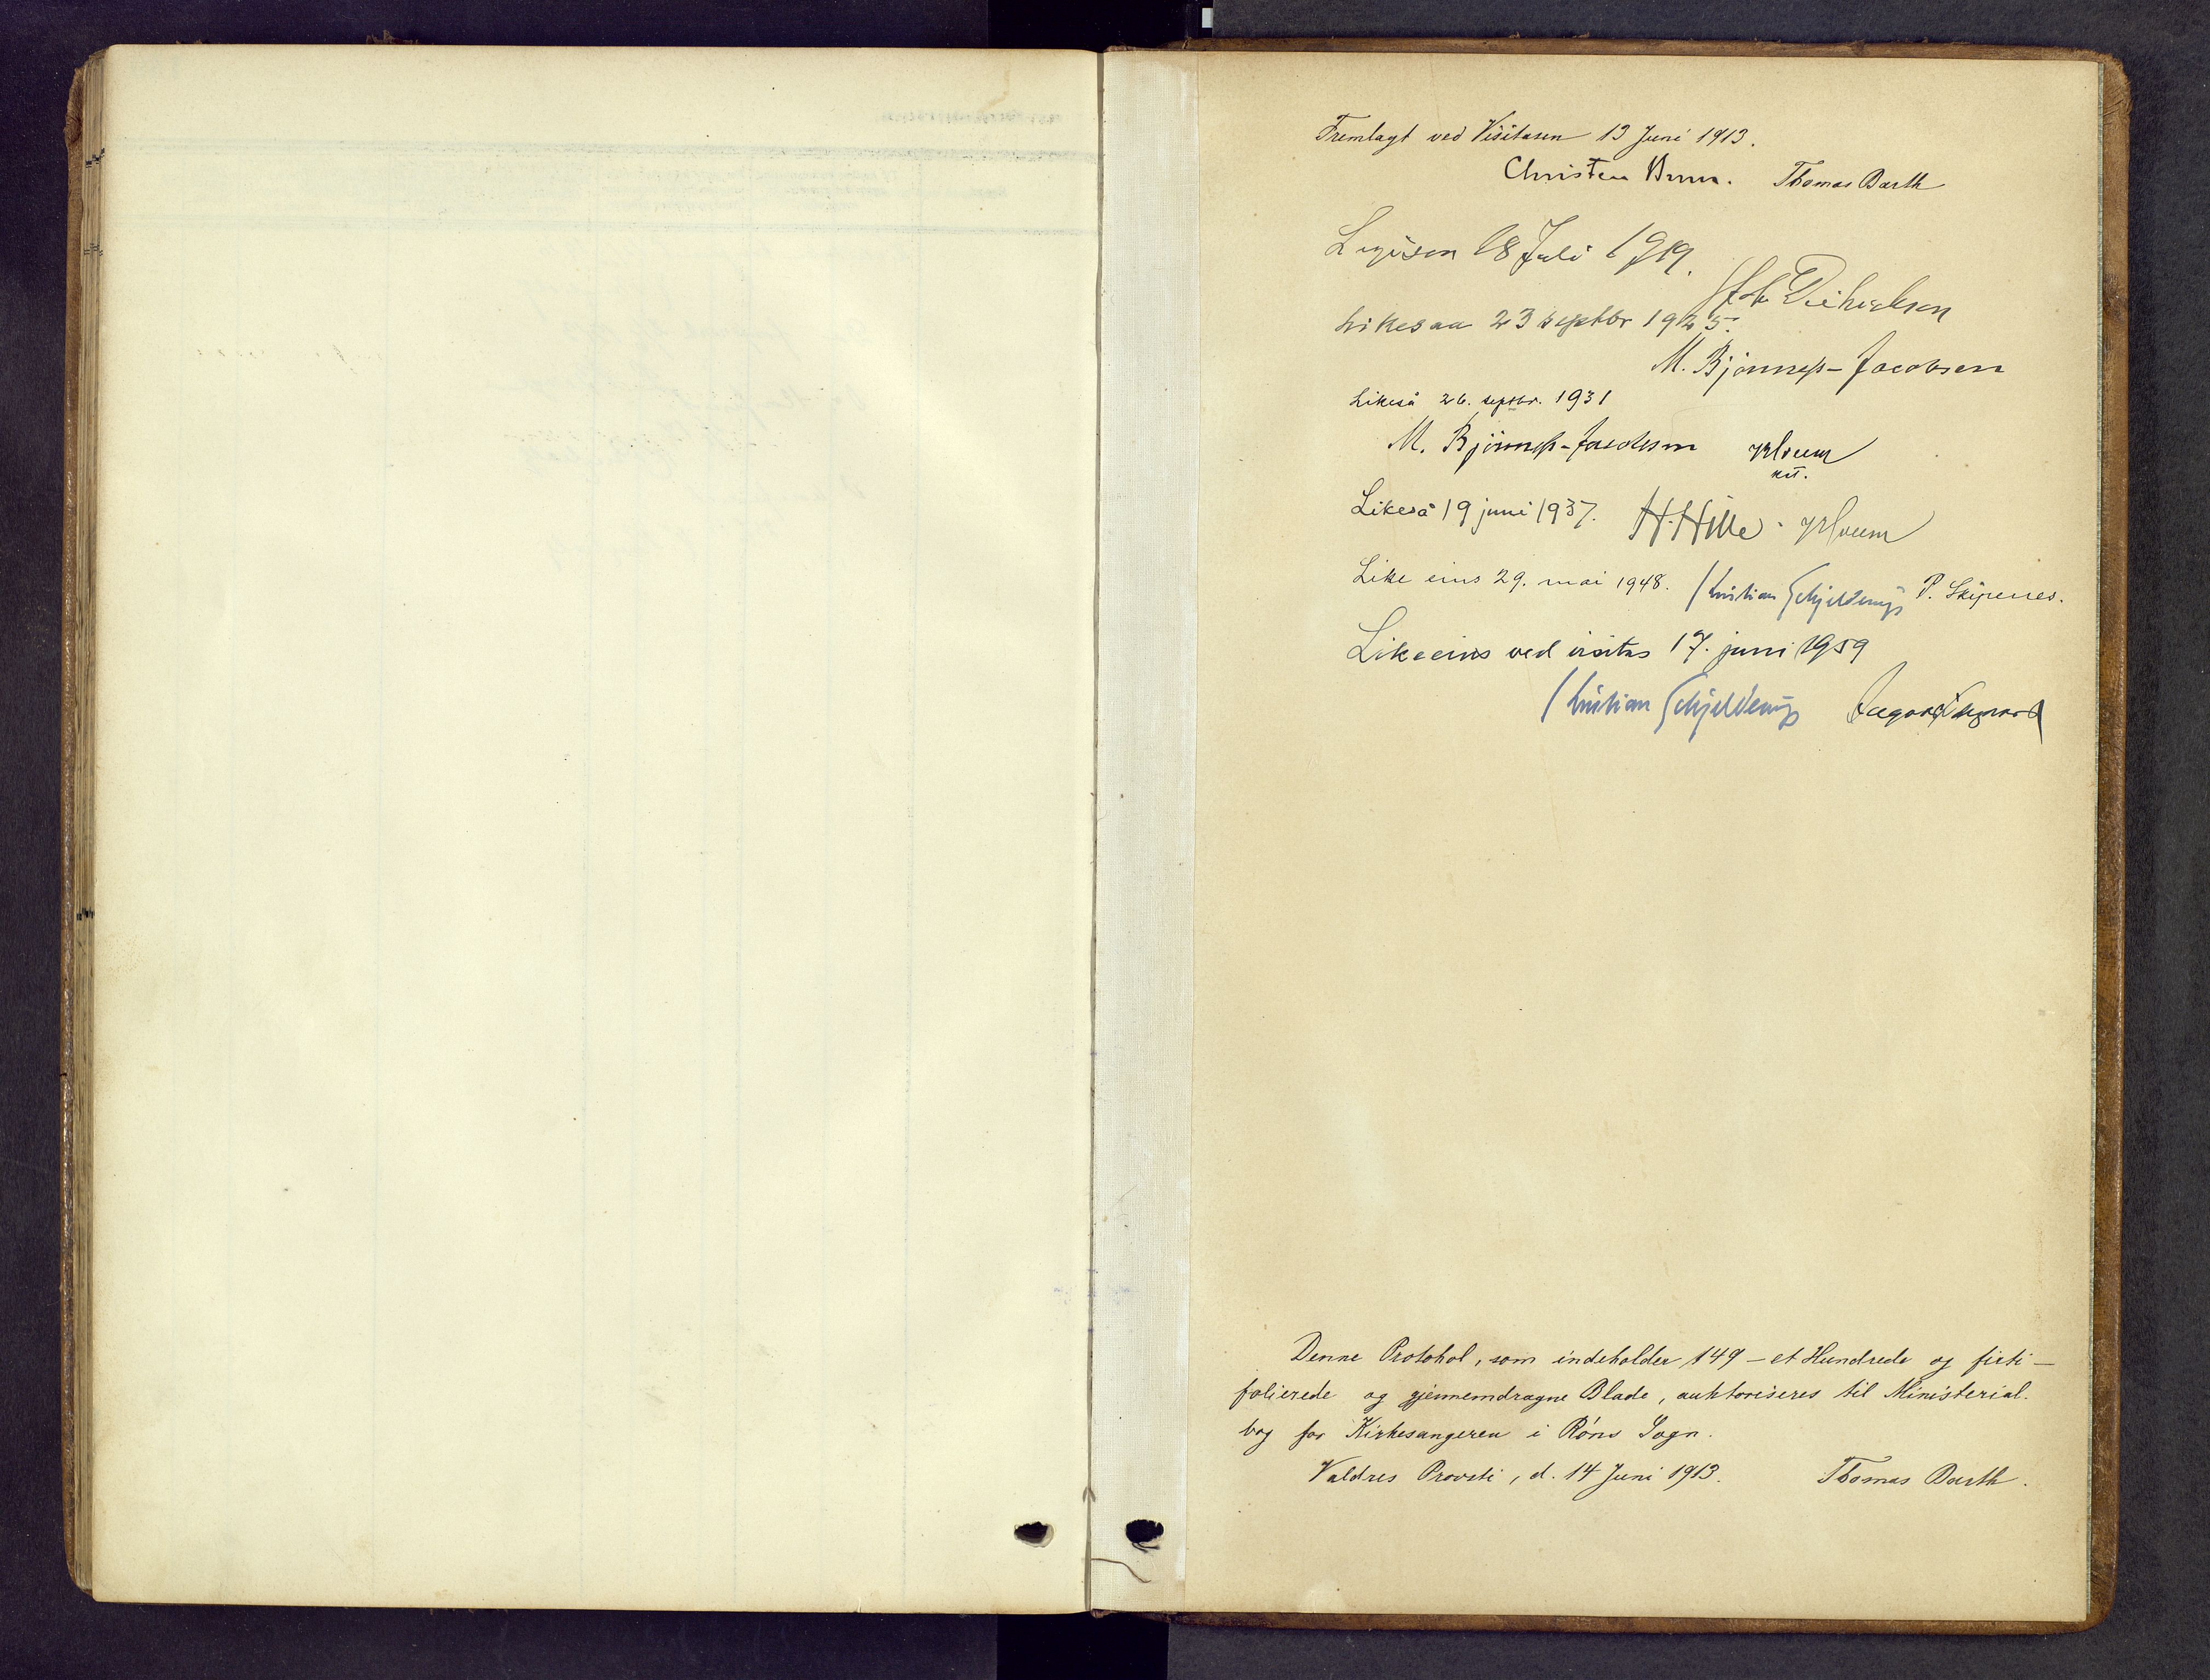 Fremlagt ved Visitasen 13 Juni 1913.
Christen Brun. Thomas Barth
Ligesom 18 Juli 1919.
Likesaa 23 septbr 1925.
M. Bjønness-Jacobsen
Likeså 26. septbr. 1931
M. Bjønness-Jacobsen
Likeså 19 juni 1937. H. Hille
Like eins 29. mai 1948. Kristian Schjelderup P. Skipenes.
Likeeins ved visitas 17. juni 1959
Kristian Schjelderup
Denne Protokol, som indeholder 149 – et Hundrede og firti –
folierede og gjennemdragne Blade, auktoriseres til Ministerial-
bog for Kirkesangeren i Røns Sogn.
Valdres Provsti, d. 14 Juni 1913. Thomas Barth.